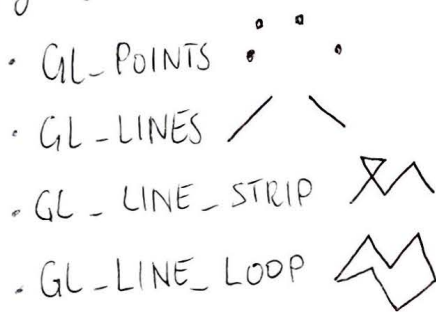 · GL_POINTS
· GL_LINES
· GL_LINE_STRIP
· GL_LINE_LOOP